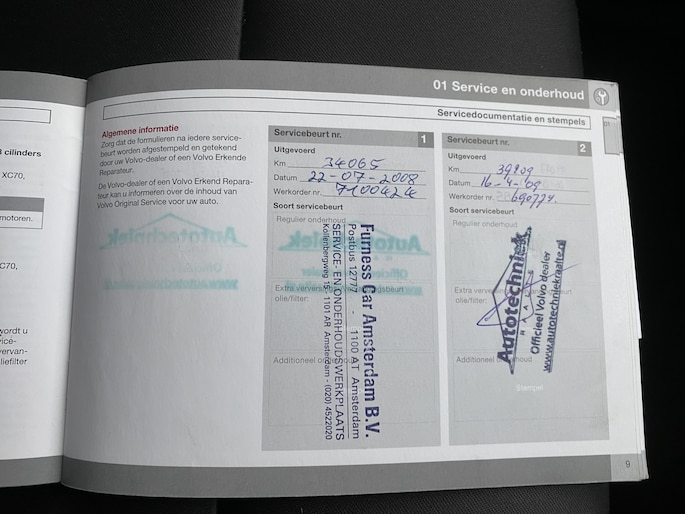 01 Service en onderhoud
Servicedocumentatie en stempels
01
cilinders
XC70,
motoren.
C70,
wordt u
liefilter
Algemene informatie
Zorg dat de formulieren na iedere service-
beurt worden afgestempeld en getekend
door uw Volvo-dealer of een Volvo Erkende
Reparateur.
De Volvo-dealer of een Volvo Erkend Repara-
teur kan u informeren over de inhoud van
Volvo Original Service voor uw auto.
Autotechniek
Servicebeurt nr. 1
Uitgevoerd
Km 34065
Datum 22-07-2008
Werkorder nr. 7100424
Soort servicebeurt
Regulier onderhoud
Extra
olie/filter:
Additioneel
Furness Car Amsterdam B.V.
Postbus 12777 - 1100 AT Amsterdam
SERVICE- EN ONDERHOUDSWERKPLAATS
Kollenbergweg 15 - 1101 AR Amsterdam - (020) 4522020
Servicebeurt nr. 2
Uitgevoerd
Km
Datum 16-4-'09
Werkorder nr.
Soort servicebeurt
Regulier onderhoud
olie/filter:
Additioneel onderhoud
Stempel
Autotechniek
Officieel Volvo dealer
9